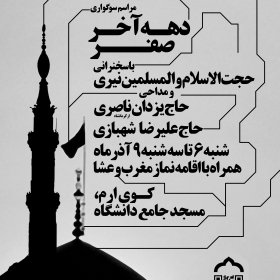 مراسم سوگواری
دهه آخر
صفر
با سخنرانی
حجت الاسلام والمسلمین نیری
و مداحی
حاج یزدان ناصری
از کرمانشاه
حاج علیرضا شهبازی
شنبه ۶ تا سه شنبه ۹ آذرماه
همراه با اقامه نماز مغرب و عشا
کوی ارم،
مسجد جامع دانشگاه